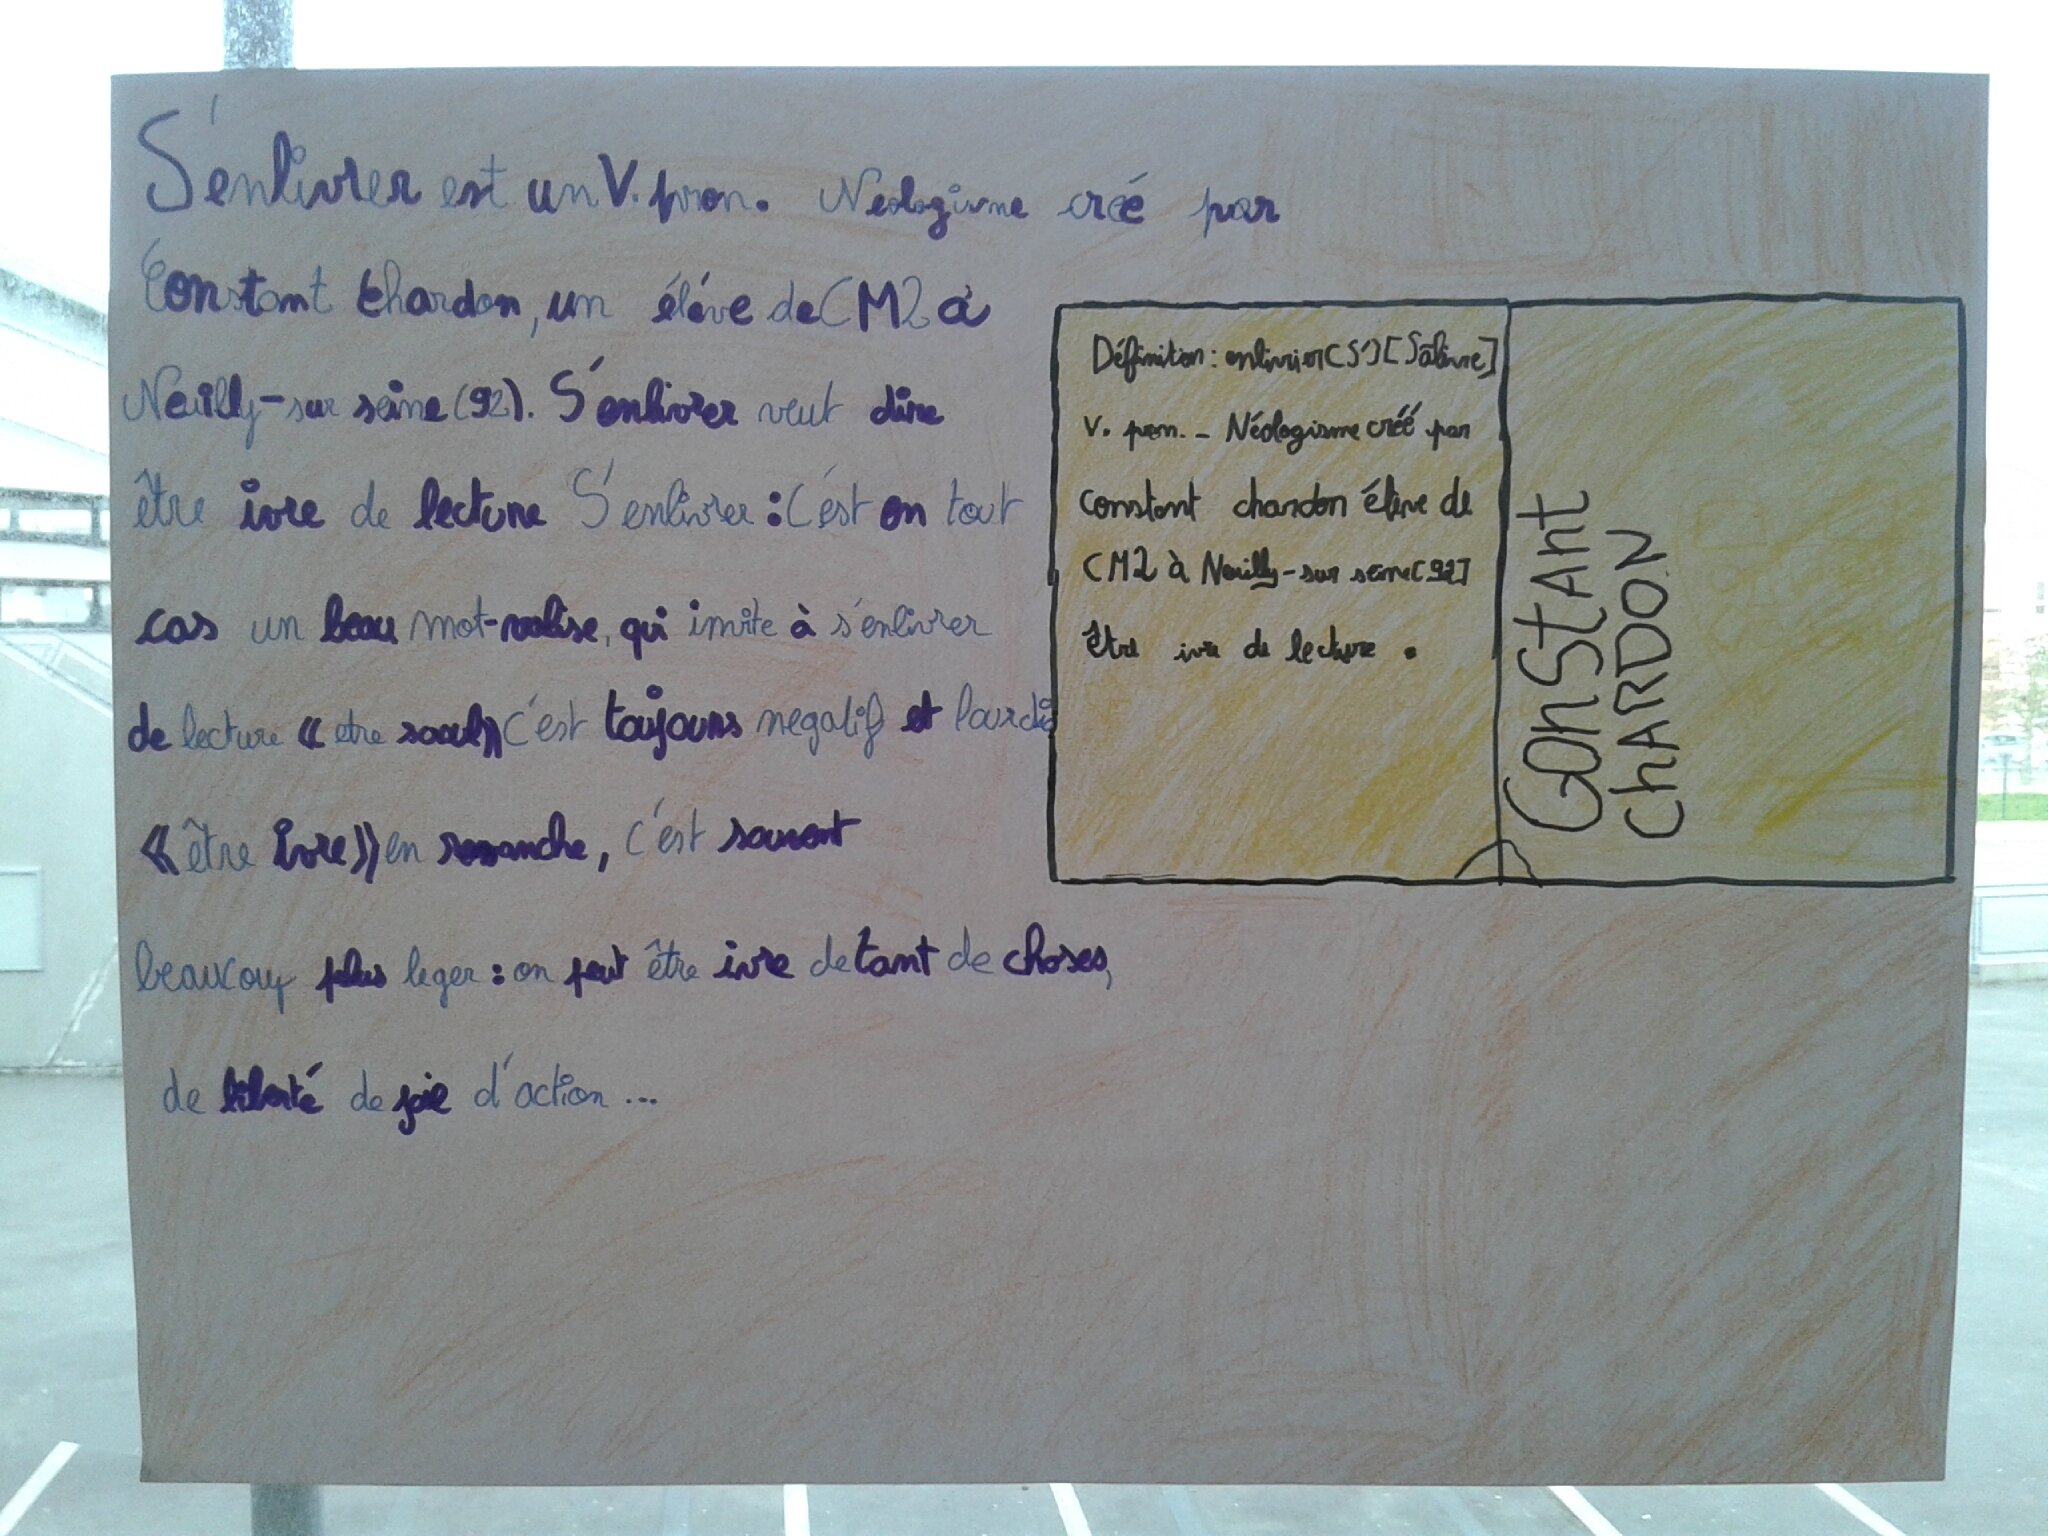 S'enlivrer est un V. pron. Néologisme créé par
Constant chardon, un éléve de CM2 à
Neuilly-sur seine (92). S'enlivrer veut dire
être ivre de lecture S'enlivrer : C'est en tout
cas un beau mot-valise, qui invite à s'enlivrer
de lecture « etre saoul » c'est toujours negatif et lourd
« être ivre » en revanche, c'est souvent
beaucoup plus leger : on peut être ivre de tant de choses,
de liberté de joie d'action ...
Définition : enlivrer (S') [Sãlivre]
V. pron. - Néologisme créé par
constant chardon élève de
CM2 à Neuilly-sur seine (92)
Être ivre de lecture .
CONStAnt
ChARDON